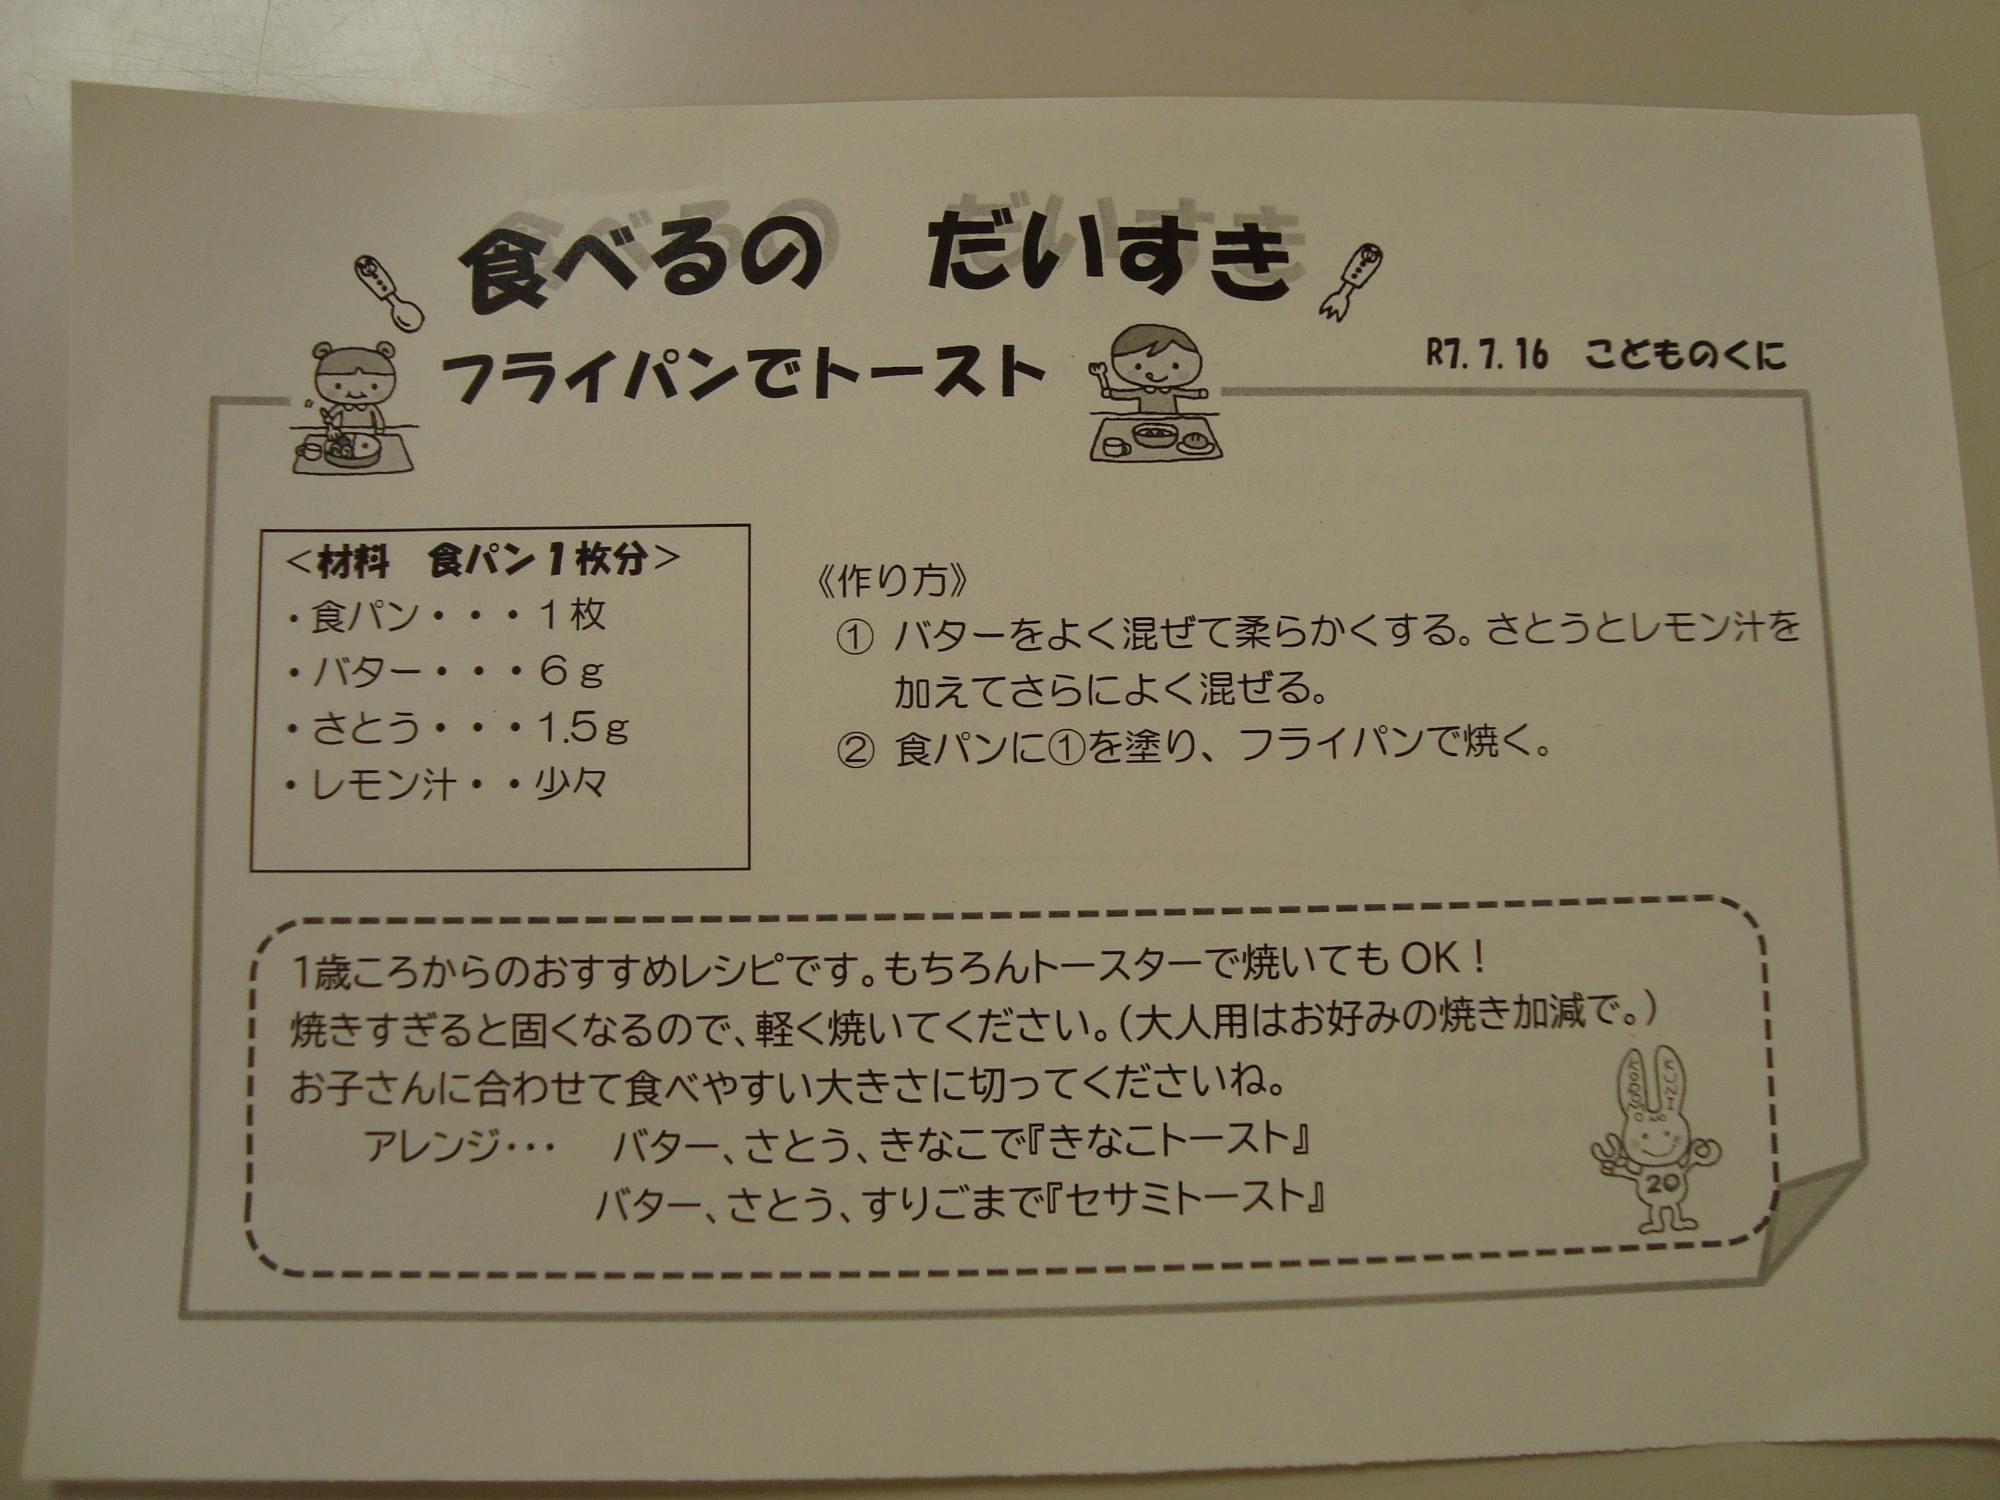 食べるの　だいすき
フライパンでトースト
R7.7.16　こどものくに
＜材料　食パン１枚分＞
・食パン・・・１枚
・バター・・・６ｇ
・さとう・・・1.5ｇ
・レモン汁・・少々
《作り方》
① バターをよく混ぜて柔らかくする。さとうとレモン汁を
加えてさらによく混ぜる。
② 食パンに①を塗り、フライパンで焼く。
1歳ころからのおすすめレシピです。もちろんトースターで焼いてもOK！
焼きすぎると固くなるので、軽く焼いてください。（大人用はお好みの焼き加減で。）
お子さんに合わせて食べやすい大きさに切ってくださいね。
アレンジ･･･　バター、さとう、きなこで『きなこトースト』
バター、さとう、すりごまで『セサミトースト』
20